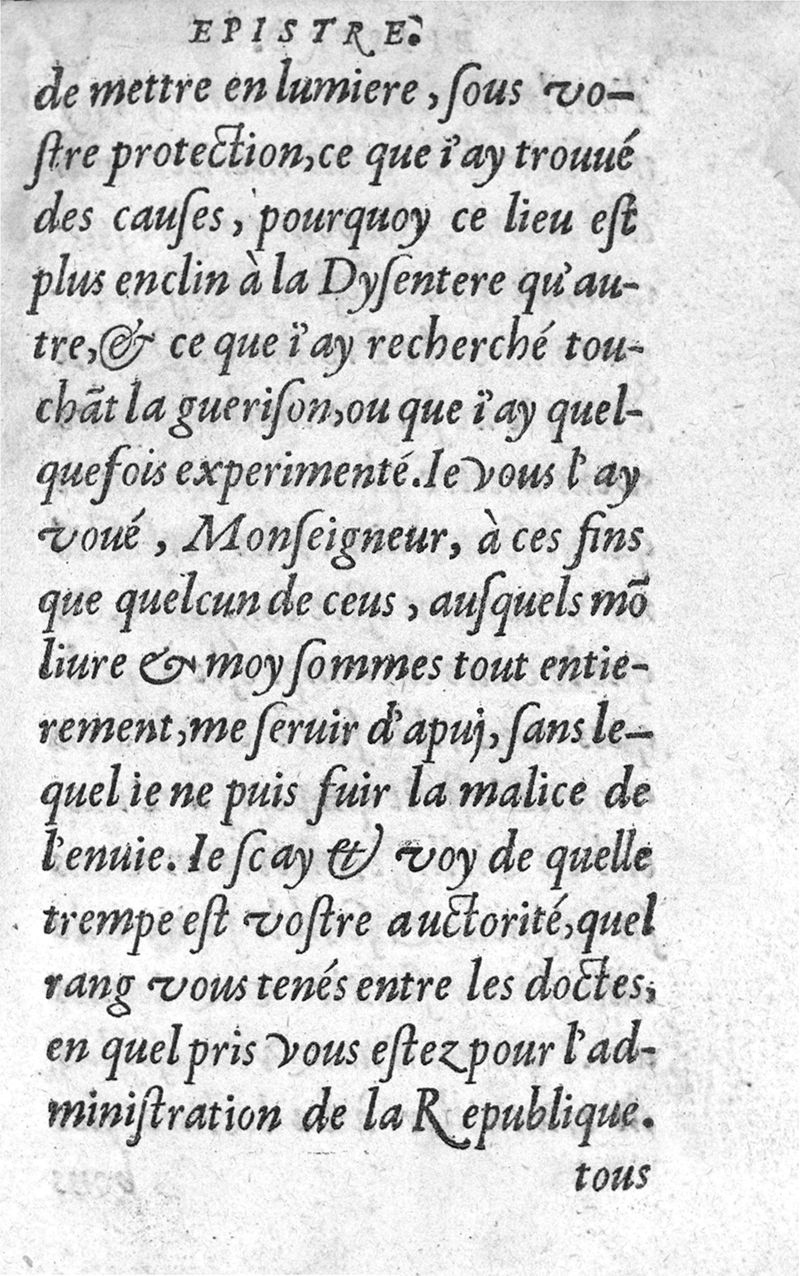 EPISTRE.
de mettre en lumiere, ſous vo-
ſtre protection, ce que i'ay trouué
des cauſes, pourquoy ce lieu eſt
plus enclin à la Dyſentere qu'au-
tre, & ce que i'ay recherché tou-
chãt la gueriſon, ou que i'ay quel-
quefois experimenté. Ie vous l'ay
voué, Monſeigneur, à ces fins
que quelcun de ceus, auſquels mõ
liure & moy ſommes tout entie-
rement, me ſeruir d'apuj, ſans le-
quel ie ne puis fuir la malice de
l'enuie. Ie ſcay & voy de quelle
trempe eſt voſtre auctorité, quel
rang vous tenés entre les doctes,
en quel pris vous eſtez pour l'ad-
miniſtration de la Republique.
tous